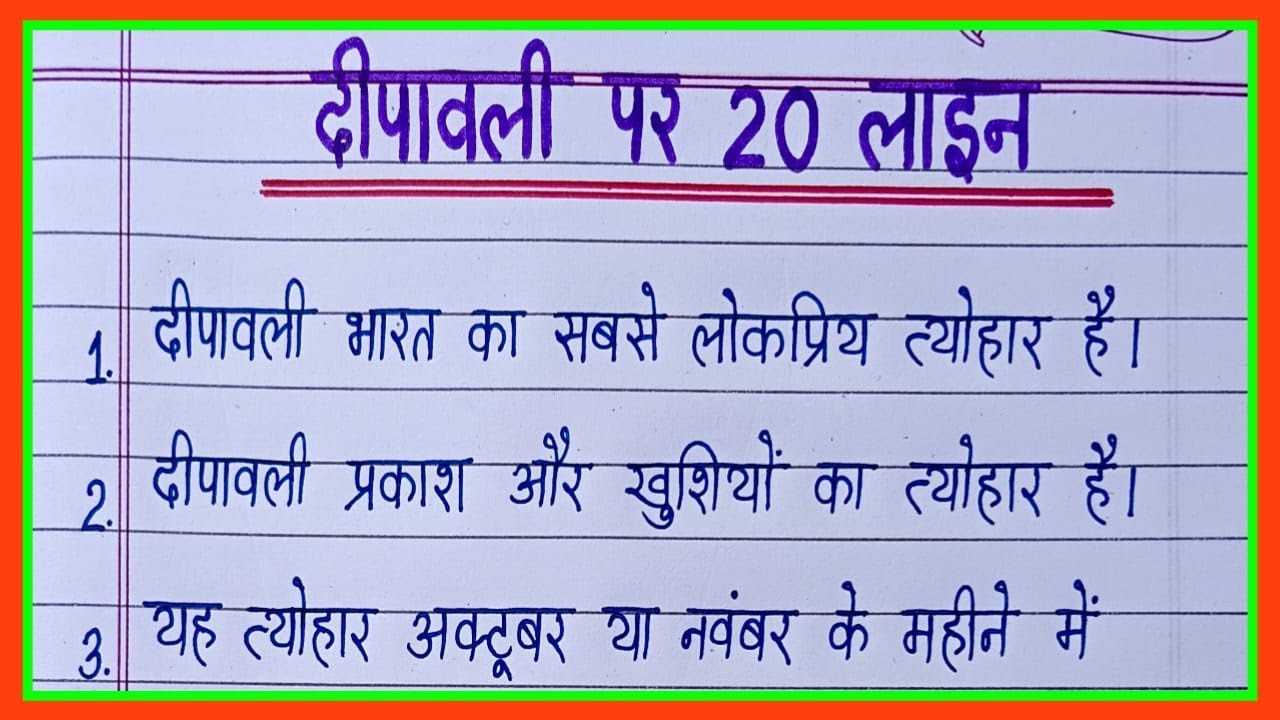 दीपावली पर 20 लाइन
1. दीपावली भारत का सबसे लोकप्रिय त्योहार है।
2. दीपावली प्रकाश और खुशियों का त्योहार है।
3. यह त्योहार अक्टूबर या नवंबर के महीने में